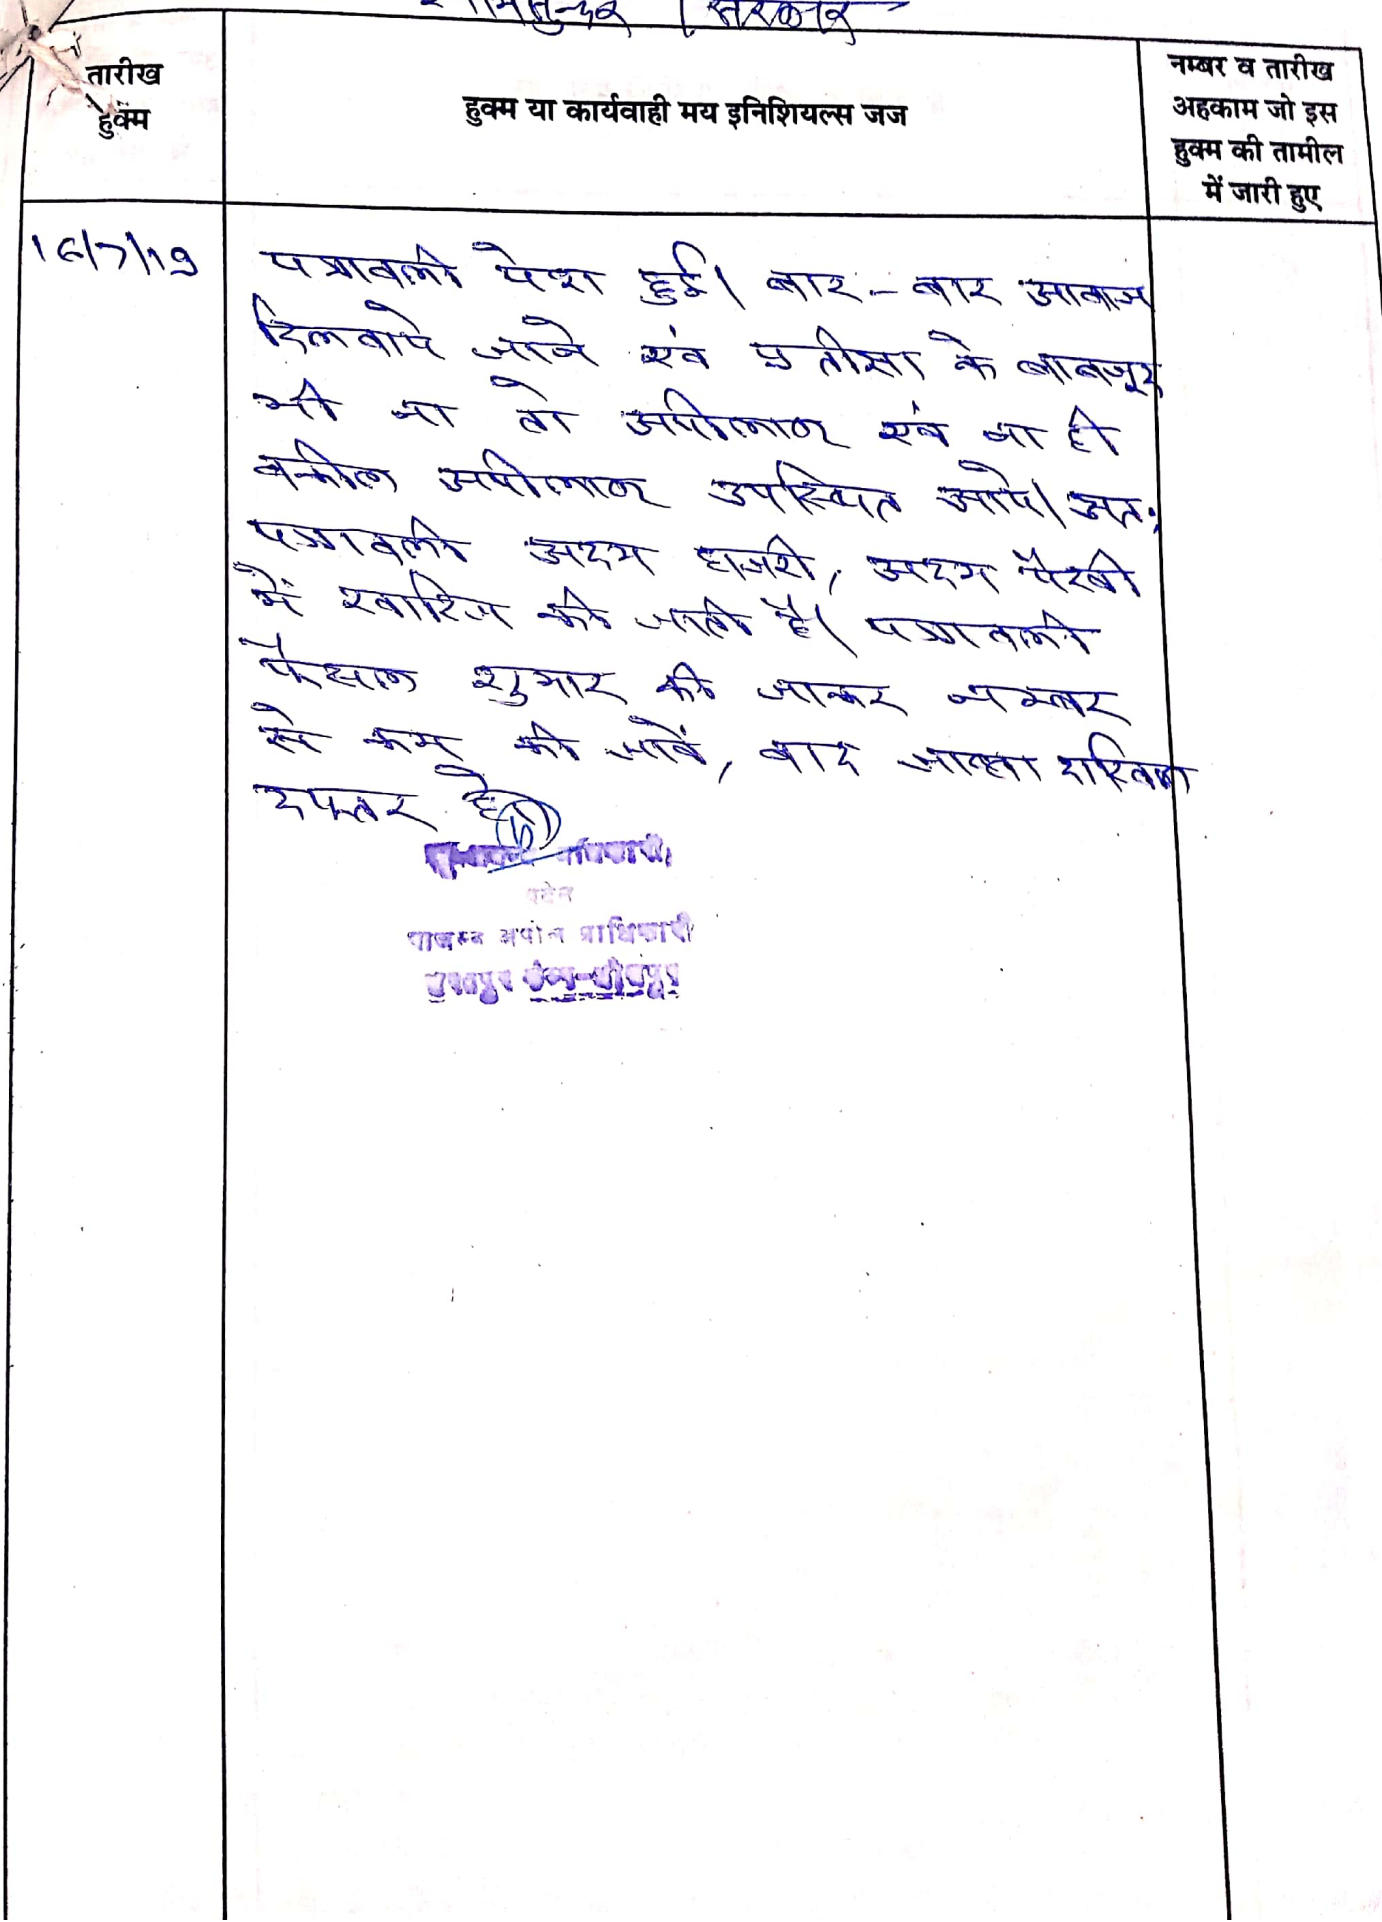 सरकार
तारीख
हुक्म
हुक्म या कार्यवाही मय इनिशियल्स जज
नम्बर व तारीख
अहकाम जो इस
हुक्म की तामील
में जारी हुए
16/7/19
पत्रावली पेश हुई। बार-बार आवाज
दिलवाये जाने एवं प्रतीक्षा के बावजूद
भी ना तो अपीलान्ट एवं ना ही
वकील अपीलान्ट उपस्थित आये। अतः
पत्रावली अदम हाजरी, अदम पैरवी
में खारिज की जाती है। पत्रावली
फैसल शुमार की जाकर नम्बर
से कम की जावें, बाद जाब्ता दाखिल
दफ्तर हो।
पदेन
राजस्व अपील प्राधिकारी